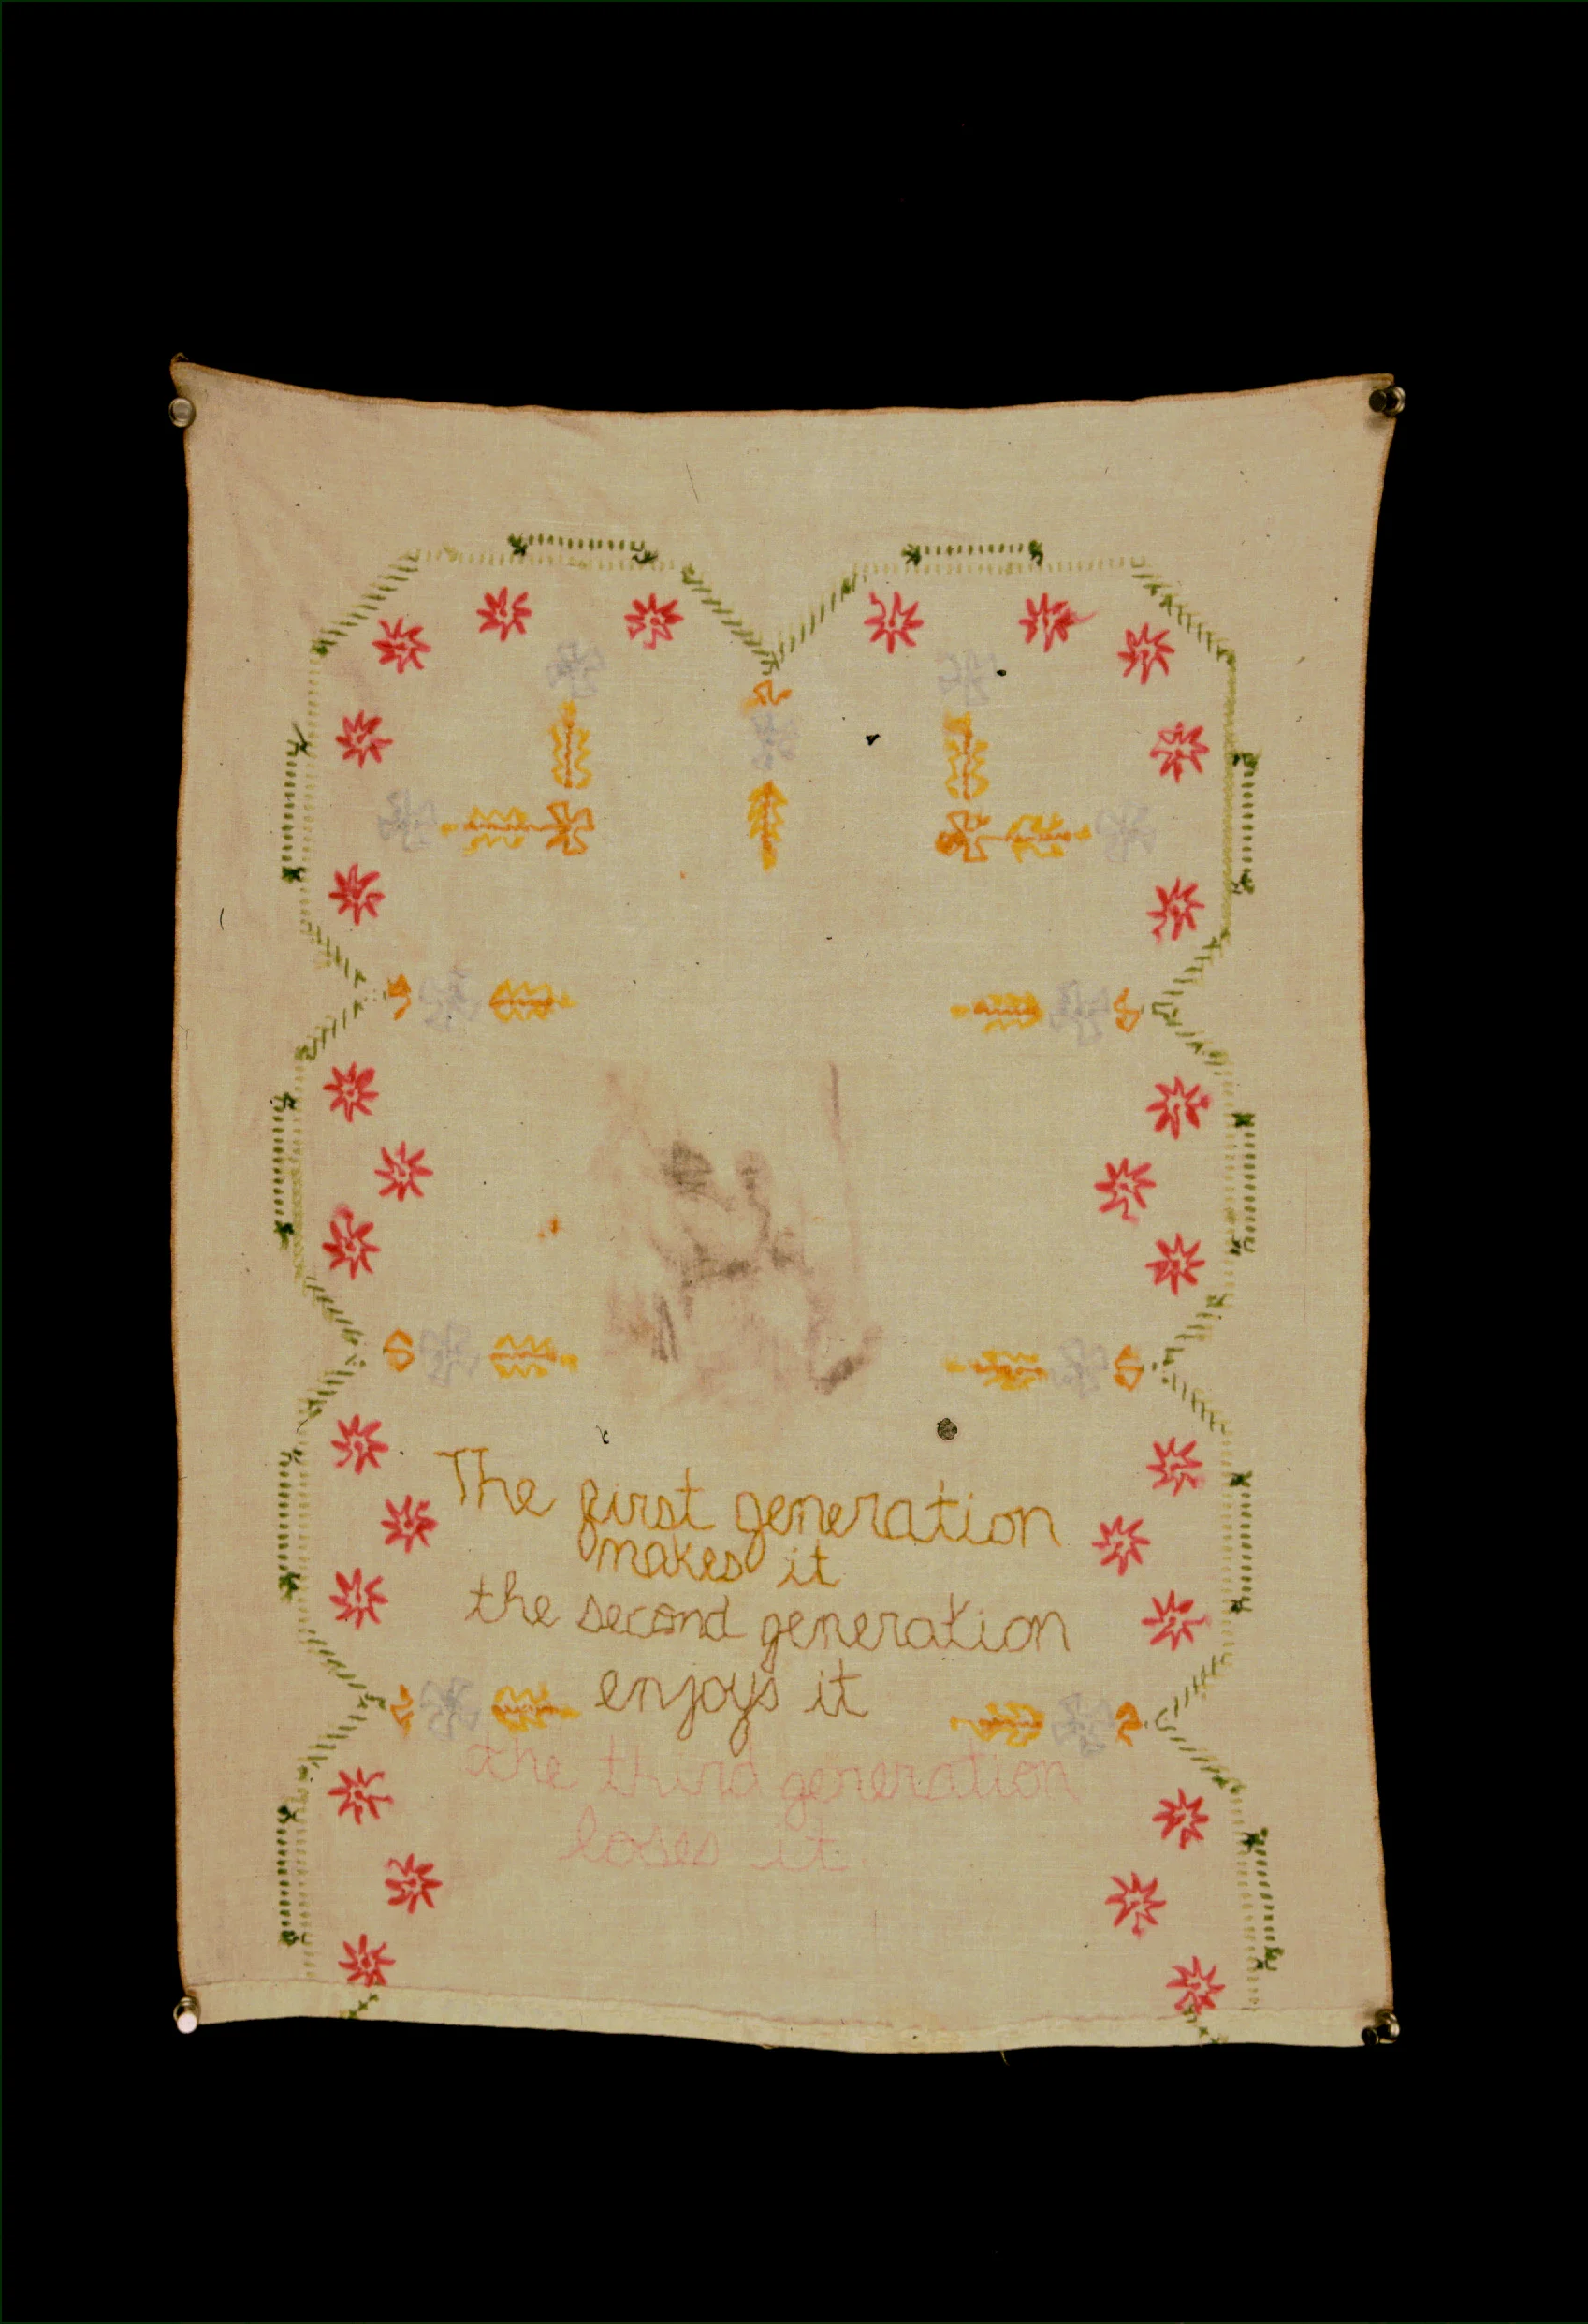 The first generation
makes it
the second generation
enjoys it
the third generation
loses it